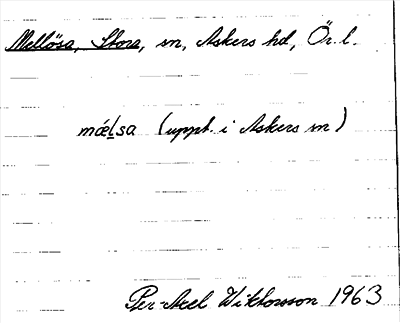 Mellösa, Stora, sn, Askers hd, Ör. l.
mǽlsa (uppt. i Askers sn)
Per-Axel Wiktorsson 1963